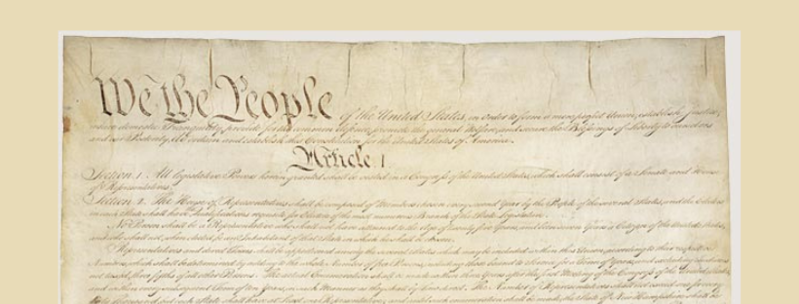 We the People of the United States, in Order to form a more perfect Union, establish Justice,
insure domestic Tranquility, provide for the common defence, promote the general Welfare, and secure the Blessings of Liberty to ourselves
and our Posterity, do ordain and establish this Constitution for the United States of America.
Article I
Section 1. All legislative Powers herein granted shall be vested in a Congress of the United States, which shall consist of a Senate and House
of Representatives.
Section 2. The House of Representatives shall be composed of Members chosen every second Year by the People of the several States, and the Electors
in each State shall have the Qualifications requisite for Electors of the most numerous Branch of the State Legislature.
No Person shall be a Representative who shall not have attained to the Age of twenty five Years, and been seven Years a Citizen of the United States,
and who shall not, when elected, be an Inhabitant of that State in which he shall be chosen.
Representatives and direct Taxes shall be apportioned among the several States which may be included within this Union, according to their respective
Numbers, which shall be determined by adding to the whole Number of free Persons, including those bound to Service for a Term of Years, and excluding Indians
not taxed, three fifths of all other Persons. The actual Enumeration shall be made within three Years after the first Meeting of the Congress of the United States,
and within every subsequent Term of ten Years, in such Manner as they shall by Law direct. The Number of Representatives shall not exceed one for every